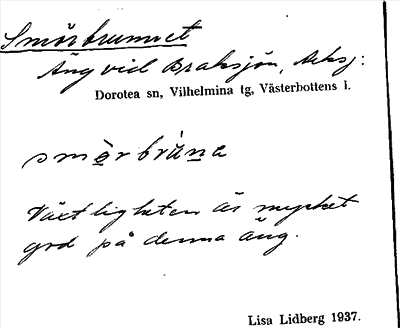 Smörbrunnet
Äng vid Braksjön, Aksj:
Dorotea sn, Vilhelmina tg, Västerbottens l.
smörbräna
Växtligheten är mycket
god på denna äng.
Lisa Lidberg 1937.